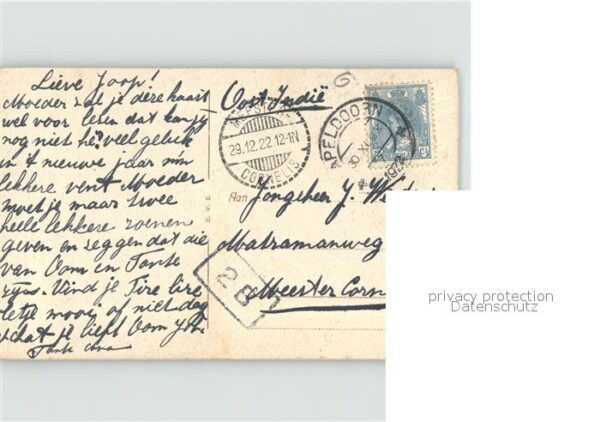 Lieve Joop!
Moeder zal je deze kaart
wel voor lezen dat kan jy
nog niet hè, veel geluk
in 't nieuwe jaar mijn
lekkere vent Moeder
moet je maar twee
heele lekkere zoenen
geven en zeggen dat die
van Oom en Tante
zyn. Vind je Tire lire
letje mooi of niet dag
dat je liefs Oom
Tante
Oost-Indië
29.12.22 12-1N
CORNELIS
APELDOORN
1922
Aan
Jongeheer J. W
Matramanweg
Meester Corn
28
privacy protection
Datenschutz